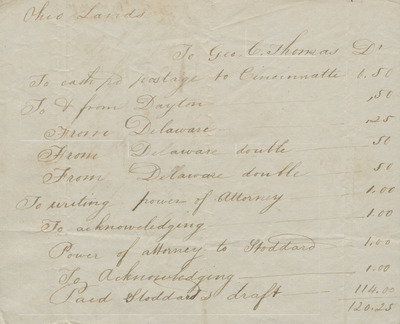 Ohio Lands
To Geo. C. Thomas Dr
To cash pd postage to Cincinnatte 1.50
To & from Dayton .50
From Delaware .25
From Delaware double 50
From Delaware double 50
To writing power of Attorney 1.00
To acknowledging 1.00
Power of attorney to Stoddard 1.00
To Acknowledging 1.00
Paid Stoddards draft 114.00
120.25